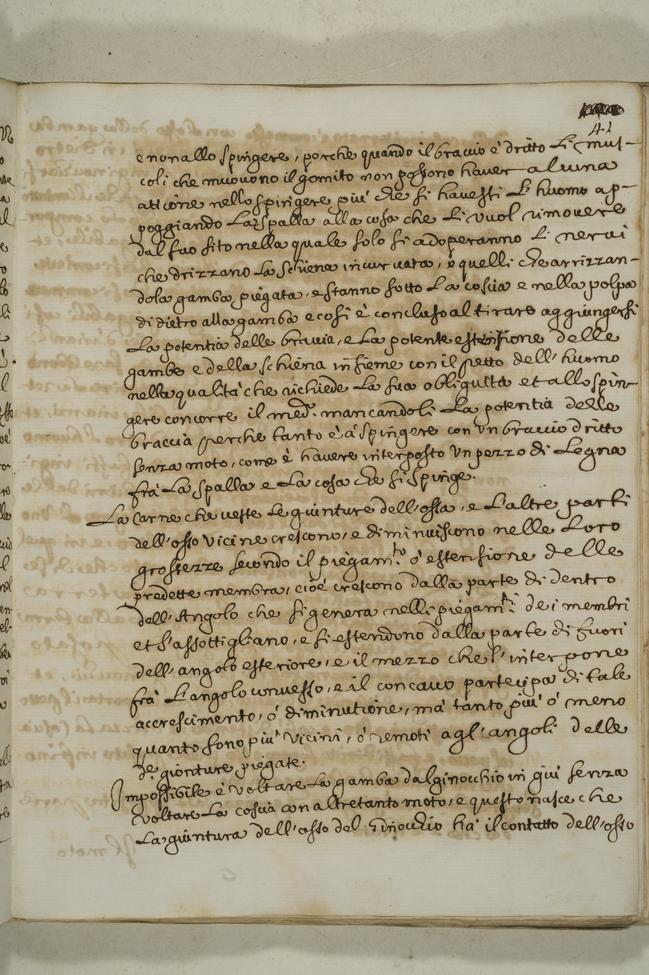 41
e non allo spingere, perche quando il braccio è dritto Li mus-
coli che muovono il gomito non possono haver alcuna
attione nello spingere più che si havesti L'huomo ap-
poggiando La spalla alla cosa che Li vuol rimovere
dal suo sito nella quale solo si adoperanno Li nervi
che drizzano La schiena incurvata, e quelli che arrizzan-
dola gamba piegata, e stanno sotto La coscia e nella polpa
di dietro alla gamba e cosi è concluso al tirare aggiungersi
La potentia delle braccia, e La potente estensione delle
gambe e della schiena insieme con il petto dell'huomo
nella qualità che richiede La sua obliquità et allo spin-
gere concorre il med.º mancandoli La potentia delle
braccia perche tanto è à spingere con un braccio dritto
senza moto, come è havere interposto un pezzo di Legna
frà La spalla e La cosa che si spinge.
La Carne che veste Le giunture dell'ossa, e L'altre parti
dell'osso vicine crescono, e diminuiscono nelle Loro
grossezze secondo il piegam.to ò estensione delle
predette membra, cioè crescono dalla parte di dentro
dell'Angolo che si genera nelli piegam.ti dei membri
et s'assottigliano, e si estendono dalla parte di fuori
dell'angolo esteriore, e il mezzo che s'interpone
frà L'angolo convesso, e il concavo partecipa di tale
accrescimento, ò diminutione, mà tanto più ò meno
quanto sono più vicini, ò remoti agl'angoli delle
de gionture piegate.
Impossibile è voltare La gamba dal ginocchio in giù senza
voltare La coscia con altretanto moto, e questo nasce che
La giuntura dell'osso del Ginocchio hà il contatto dell'osso